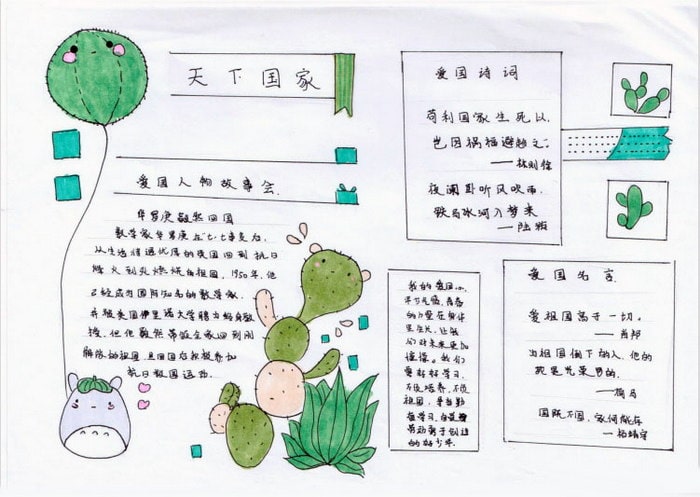 天下国家
爱国人物故事会
华罗庚毅然回国
数学家华罗庚在"七·七事变后,
从生活待遇优厚的美国回到抗日
烽火到处燃烧的祖国,1950年,他
已经成为国际知名的数学家,
并被美国伊里诺大学聘为终身教
授,但他毅然带领全家回到刚
解放的祖国,且回国后积极参加
抗日救国运动.
爱国诗词
苟利国家生死以,
岂因祸福避趋之。
——林则徐
夜阑卧听风吹雨,
铁马冰河入梦来
——陆游
我的爱国心,
学习
让我
们对未来更加
憧憬。我们
要好好学习,
不负培养,不负
祖国,争当勤
奋学习,自
劳动勇于创造
的好少年.
爱国名言
爱祖国高于一切。
——肖邦
为祖国倒下的人,他的
死是光荣的.
——荷马
国既不国,家何能存
——杨靖宇